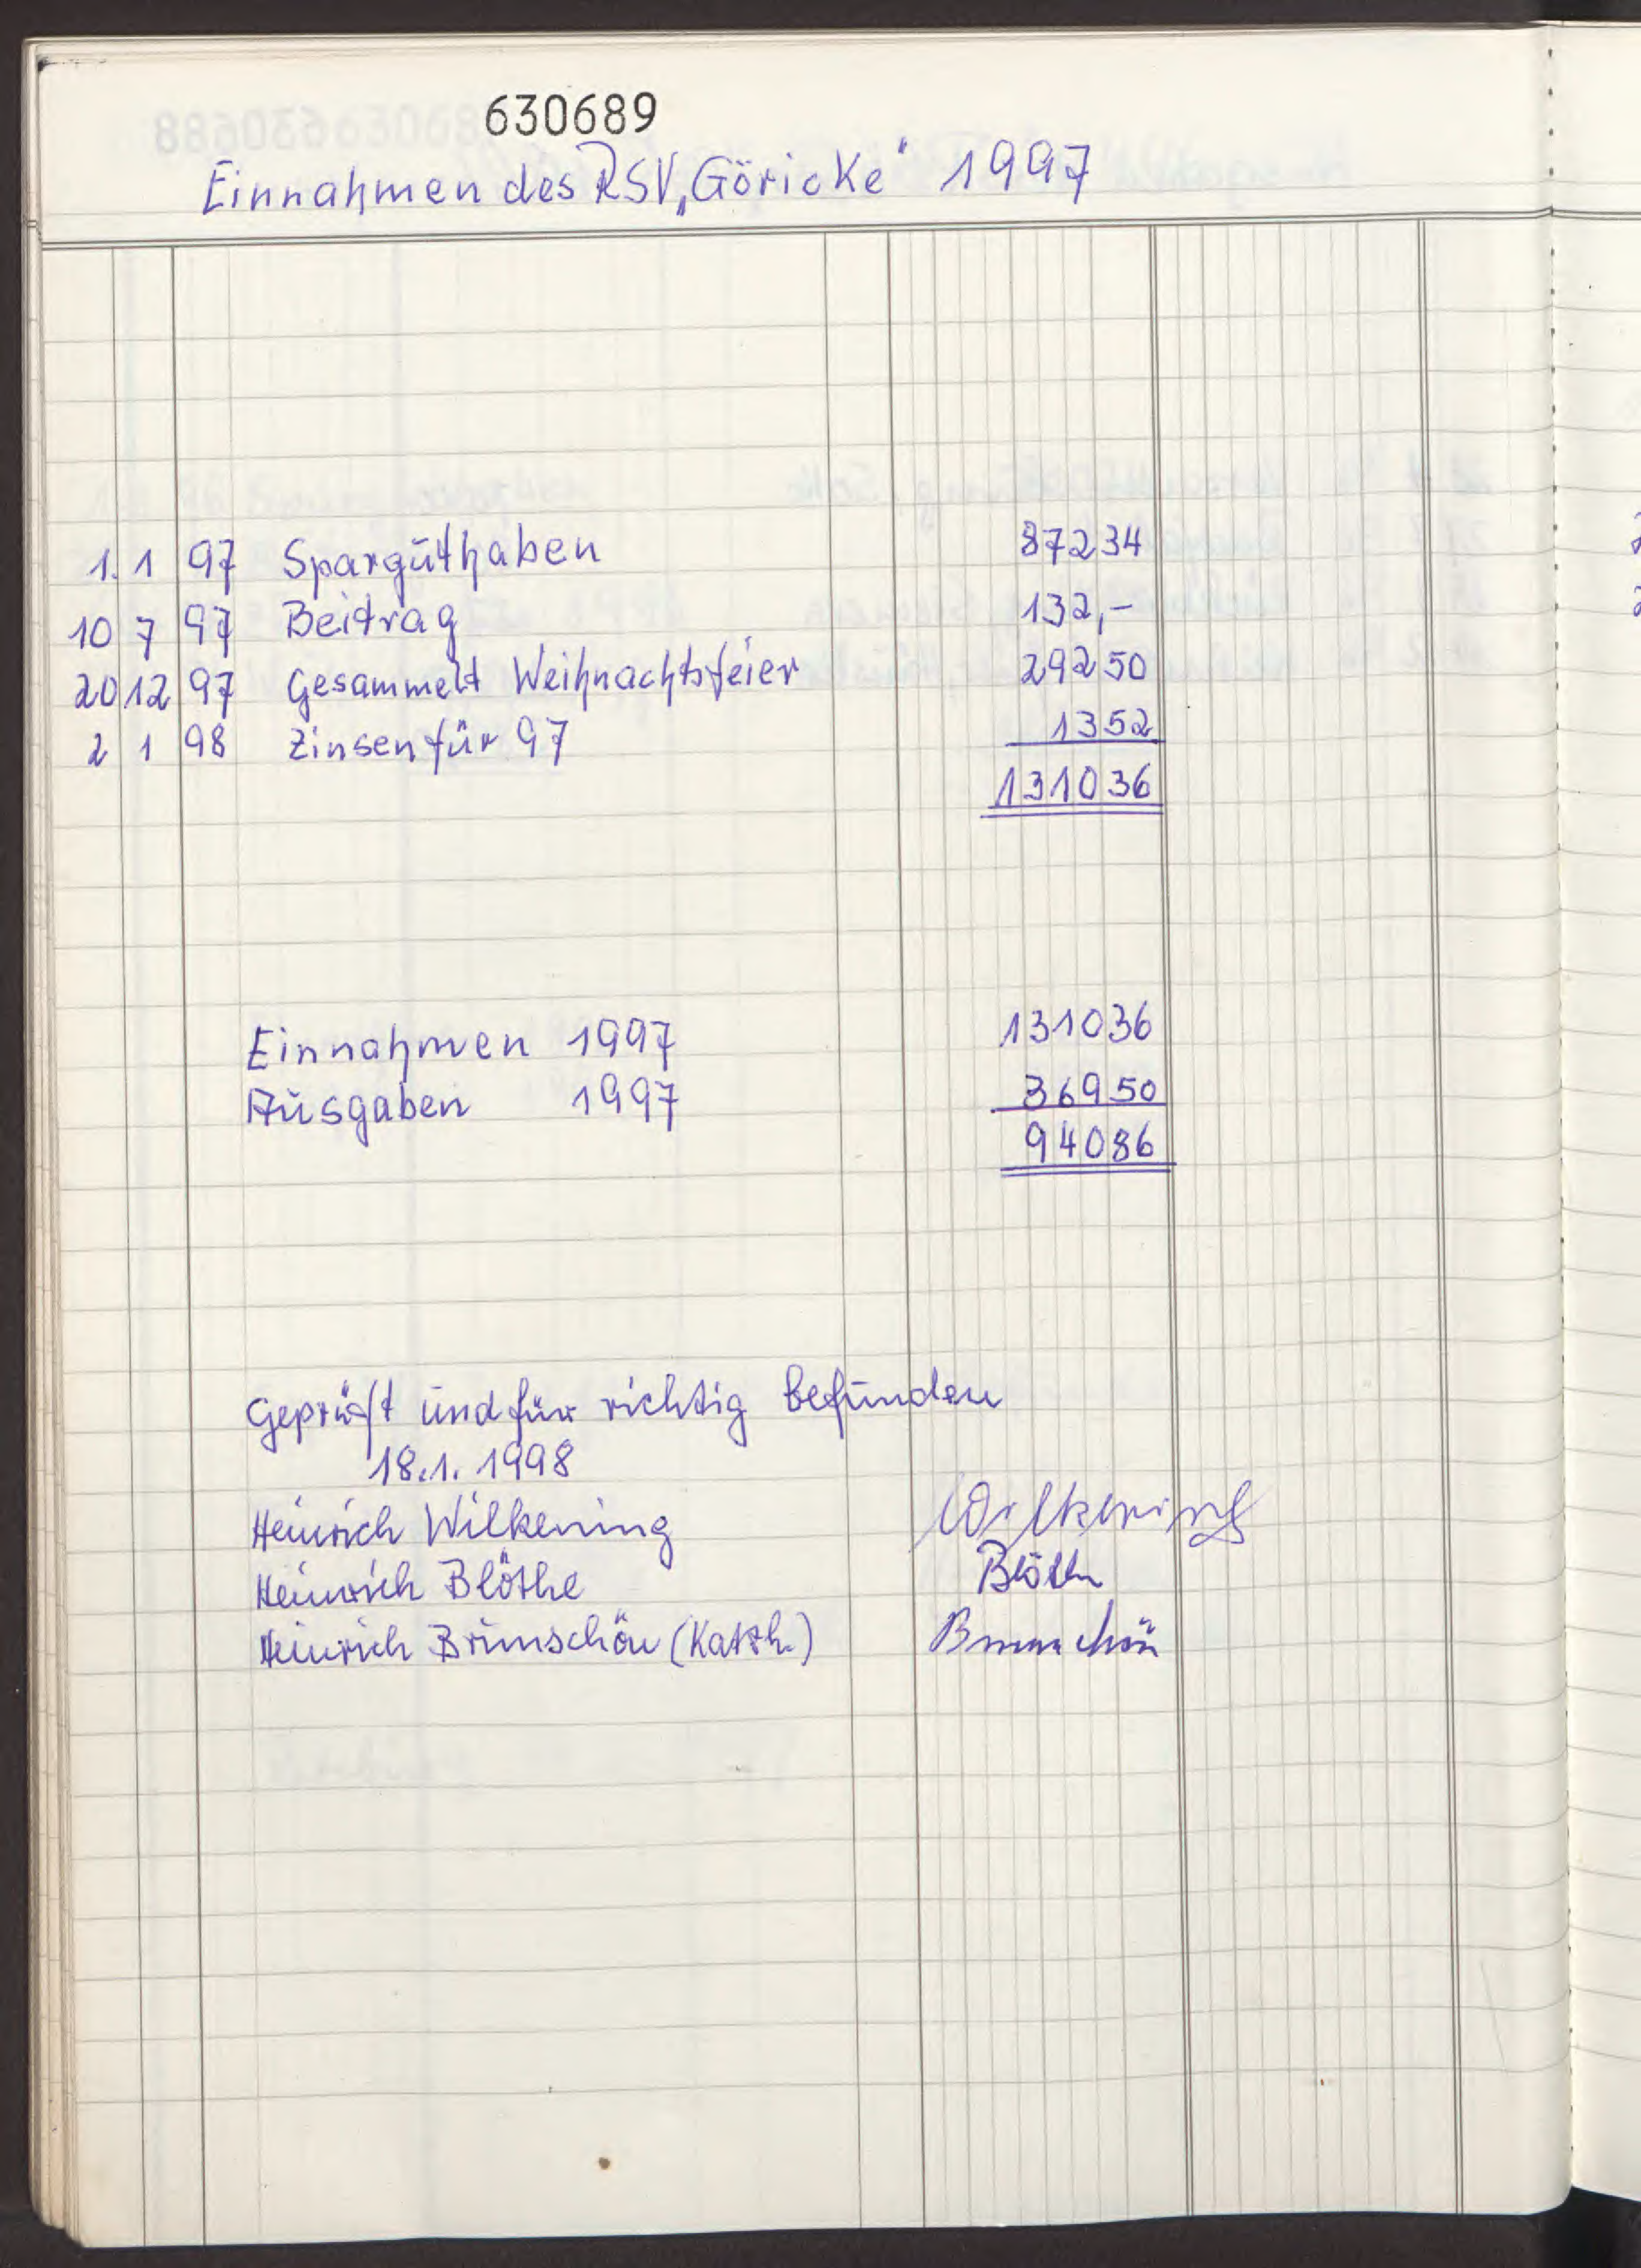 630689
Einnahmen des RSV „Göricke" 1997
1. 1 97 Sparguthaben 87234
10 7 97 Beitrag 132,-
20 12 97 Gesammelt Weihnachtsfeier 29250
2 1 98 Zinsen für 97 1352
131036
Einnahmen 1997 131036
Ausgaben 1997 36950
94086
Geprüft und für richtig befunden
18.1.1998
Heinrich Wilkening Wilkening
Heinrich Blöthe Blöthe
Heinrich Brunschön (Katzh.) Brunschön